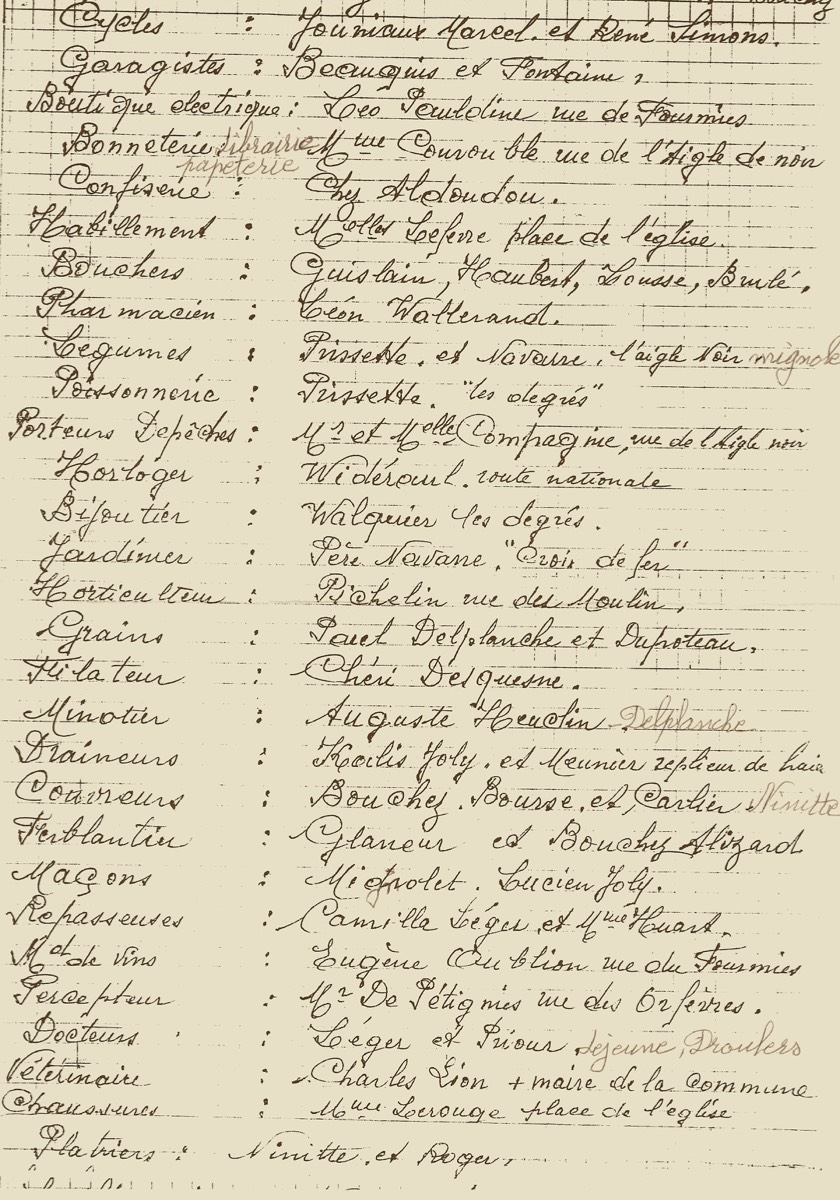 Cycles : Jouniaux Marcel. et René Simons.
Garagistes : Beauguis et Fontaine,
Boutique electrique : Leo Pauldine rue de Fourmies
Bonneterie librairie Mme Courouble rue de l'Aigle de noir
papeterie
Confiserie : Chez Aldoudou.
Habillement : Melles Lefevre place de l'église.
Bouchers : Guislain, Haubert, Lousse, Brulé.
Pharmacien : Léon Wallerand.
Légumes : Prissette. et Navarre. l'aigle Noir
Poissonnerie : Prissette. "les degrés"
Porteurs Depêches : Mr et Melle Compagnie, rue de l'Aigle noir
Horloger : route nationale
Bijoutier : Walquier les degrés.
Jardinier : Père Navarre. "Croix de fer"
Horticulteur : Pichelin rue des Moulin.
Grains : Paul Delplanche et Dupoteau.
Filateur : Chéri Delquesne.
Minotier : Auguste Heuclin. Delplanche
Draineurs : Joly. et Meunier replieur de haie
Couvreurs : Bouchez. Bourse. et Carlier Ninitte
Ferblantier : Glaneur et Bouchez Alizard
Maçons : Mignolet. Lucien Joly.
Repasseuses : Camilla Léger et Mme Huart.
Md de vins : Eugène Oublion rue du Fourmies
Percepteur : Mr De Pétignies rue des Orfèvres.
Docteurs : Léger et Priour Lejeune, Droulers
Vétérinaire : Charles Lion + maire de la commune
Chaussures : Mme Lerouge place de l'église
Platriers : Ninitte. et Roger.